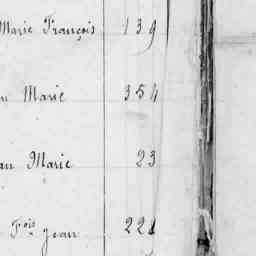 Marie François 139
Marie 354
Marie 23
Fois Jean 221